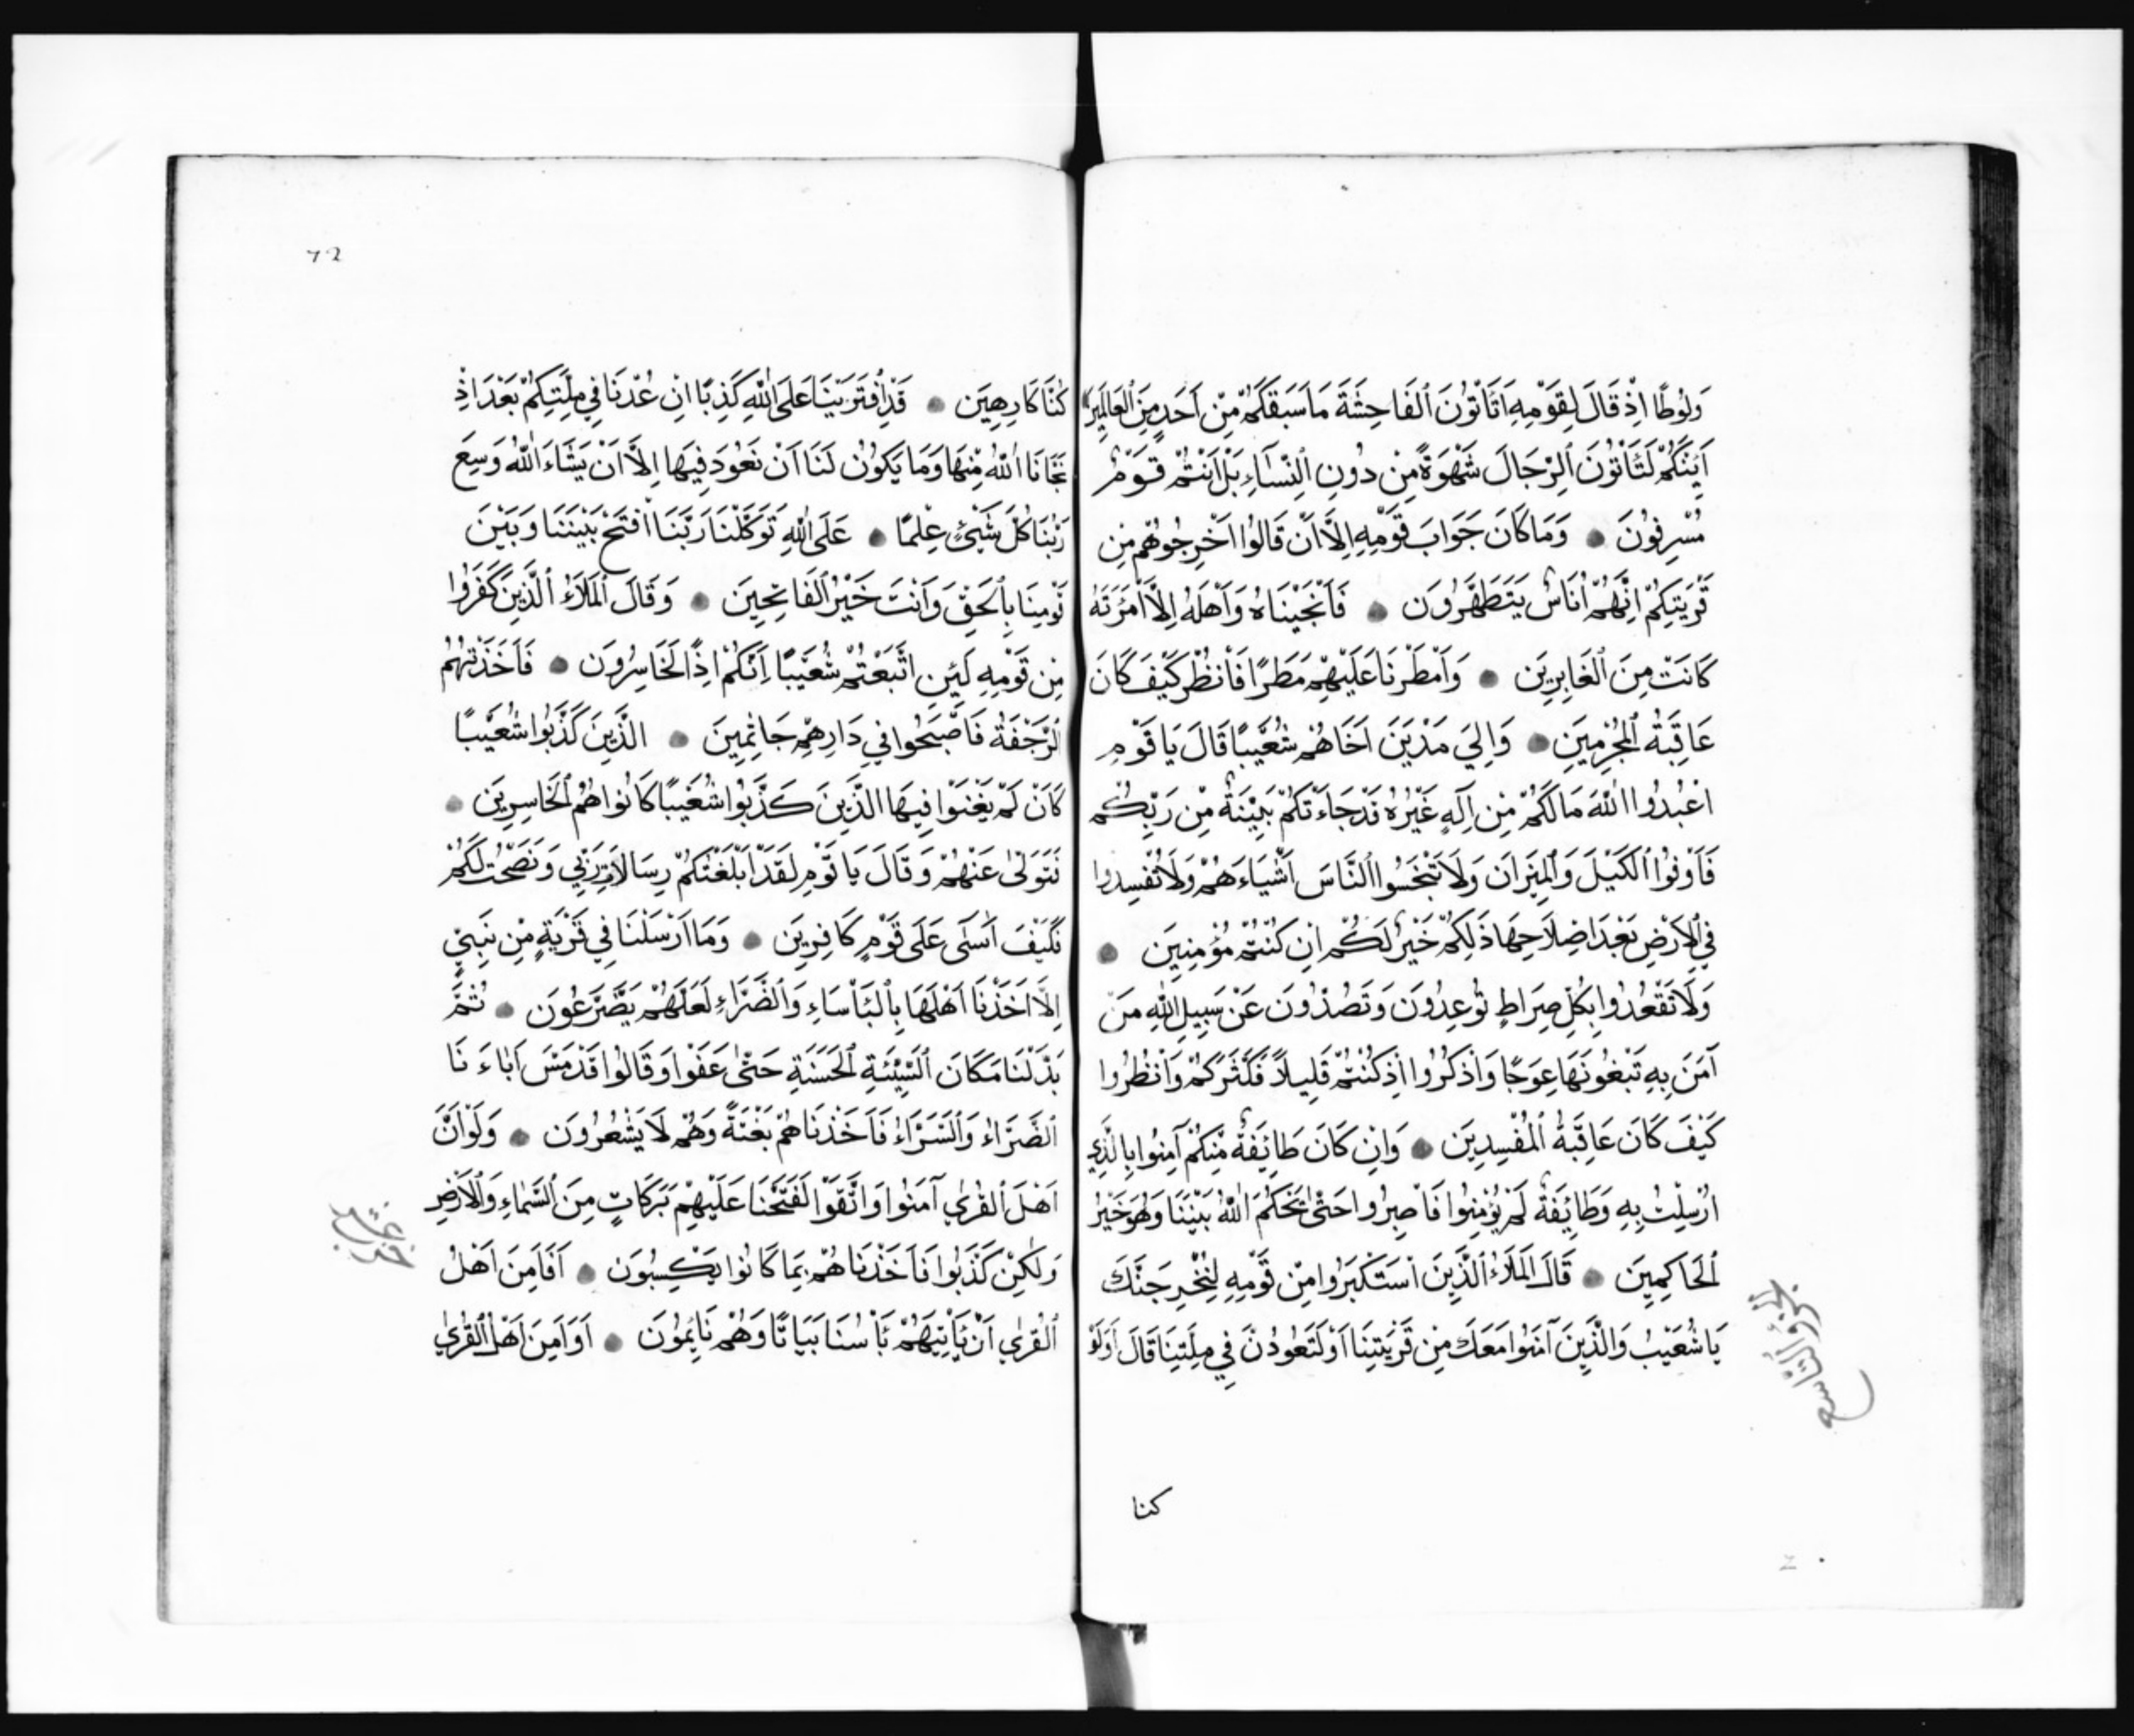 وَلُوْطًا اِذْ قَالَ لِقَوْمِهِ اَتَاْتُوْنَ ٱلْفَاحِشَةَ مَا سَبَقَكُمْ مِّنْ اَحَدٍ مِنَ ٱلْعَالَمِيْنَ
اَئِنَّكُمْ لَتَاْتُوْنَ ٱلرِّجَالَ شَهْوَةً مِنْ دُونِ ٱلنِّسَاءِ بَلْ اَنْتُمْ قَوْمٌ
مُسْرِفُونَ ● وَمَا كَانَ جَوَابَ قَوْمِهِ اِلَّا اَنْ قَالُوْا اَخْرِجُوْهُمْ مِنْ
قَرْيَتِكُمْ اِنَّهُمْ اُنَاسٌ يَتَطَهَّرُوْنَ ● فَاَنْجَيْنَاهُ وَاَهْلَهُ اِلَّا ٱمْرَءَتَهُ
كَانَتْ مِنَ ٱلْغَابِرِيْنَ ● وَاَمْطَرْنَا عَلَيْهِمْ مَطَرًا فَٱنْظُرْ كَيْفَ كَانَ
عَاقِبَةُ ٱلْمُجْرِمِيْنَ ● وَاِلٰي مَدْيَنَ اَخَاهُمْ شُعَيْبًا قَالَ يَا قَوْمِ
اعْبُدُوا اللّٰهَ مَا لَكُمْ مِّنْ اِلٰهٍ غَيْرُهُ قَدْ جَاءَتْكُمْ بَيِّنَةٌ مِّنْ رَبِّكُمْ
فَاَوْفُوْا ٱلْكَيْلَ وَٱلْمِيْزَانَ وَلَا تَبْخَسُوا ٱلنَّاسَ اَشْيَاءَهُمْ وَلَا تُفْسِدُوا
فِي ٱلْاَرْضِ بَعْدَ اِصْلَاحِهَا ذٰلِكُمْ خَيْرٌ لَّكُمْ اِنْ كُنْتُمْ مُؤْمِنِيْنَ ●
وَلَا تَقْعُدُوا بِكُلِّ صِرَاطٍ تُوْعِدُوْنَ وَتَصُدُّوْنَ عَنْ سَبِيْلِ اللّٰهِ مَنْ
آمَنَ بِهِ تَبْغُوْنَهَا عِوَجًا وَاذْكُرُوا اِذْ كُنْتُمْ قَلِيْلًا فَكَثَّرَكُمْ وَانْظُرُوا
كَيْفَ كَانَ عَاقِبَةُ ٱلْمُفْسِدِيْنَ ● وَاِنْ كَانَ طَائِفَةٌ مِّنْكُمْ آمَنُوا بِالَّذِي
اُرْسِلْتُ بِهِ وَطَائِفَةٌ لَمْ يُؤْمِنُوا فَاصْبِرُوا حَتّٰى يَحْكُمَ اللّٰهُ بَيْنَنَا وَهُوَ خَيْرُ
ٱلْحَاكِمِيْنَ ● قَالَ ٱلْمَلَاءُ ٱلَّذِيْنَ اسْتَكْبَرُوا مِنْ قَوْمِهِ لَنُخْرِجَنَّكَ
يَا شُعَيْبُ وَالَّذِيْنَ آمَنُوا مَعَكَ مِنْ قَرْيَتِنَا اَوْ لَتَعُوْدُنَّ فِي مِلَّتِنَا قَالَ اَوَلَوْ
الجزؤ التاسع
كنا
72
كُنَّا كَارِهِيْنَ ● قَدِ ٱفْتَرَيْنَا عَلَى اللّٰهِ كَذِبًا اِنْ عُدْنَا فِي مِلَّتِكُمْ بَعْدَ اِذْ
نَجّٰانَا اللّٰهُ مِنْهَا وَمَا يَكُوْنُ لَنَا اَنْ نَعُوْدَ فِيْهَا اِلَّا اَنْ يَشَاءَ اللّٰهُ وَسِعَ
رَبُّنَا كُلَّ شَيْئٍ عِلْمًا ● عَلَى اللّٰهِ تَوَكَّلْنَا رَبَّنَا ٱفْتَحْ بَيْنَنَا وَبَيْنَ
قَوْمِنَا بِٱلْحَقِّ وَاَنْتَ خَيْرُ ٱلْفَاتِحِيْنَ ● وَقَالَ ٱلْمَلَاءُ ٱلَّذِيْنَ كَفَرُوا
مِنْ قَوْمِهِ لَئِنِ اتَّبَعْتُمْ شُعَيْبًا اِنَّكُمْ اِذًا لَخَاسِرُوْنَ ● فَاَخَذَتْهُمُ
ٱلرَّجْفَةُ فَاَصْبَحُوا فِي دَارِهِمْ جَاثِمِيْنَ ● الَّذِيْنَ كَذَّبُوا شُعَيْبًا
كَاَنْ لَمْ يَغْنَوْا فِيْهَا الَّذِيْنَ كَذَّبُوا شُعَيْبًا كَانُوْا هُمُ ٱلْخَاسِرِيْنَ ●
فَتَوَلّٰى عَنْهُمْ وَقَالَ يَا قَوْمِ لَقَدْ اَبْلَغْتُكُمْ رِسَالَاتِ رَبِّي وَنَصَحْتُ لَكُمْ
فَكَيْفَ اٰسَى عَلَى قَوْمٍ كَافِرِيْنَ ● وَمَا اَرْسَلْنَا فِي قَرْيَةٍ مِنْ نَبِيٍّ
اِلَّا اَخَذْنَا اَهْلَهَا بِٱلْبَاْسَاءِ وَٱلضَّرَّاءِ لَعَلَّهُمْ يَضَّرَّعُوْنَ ● ثُمَّ
بَدَّلْنَا مَكَانَ ٱلسَّيِّئَةِ ٱلْحَسَنَةِ حَتّٰى عَفَوْا وَقَالُوْا قَدْ مَسَّ اٰبَاءَنَا
ٱلضَّرَّاءُ وَٱلسَّرَّاءُ فَاَخَذْنَاهُمْ بَغْتَةً وَهُمْ لَا يَشْعُرُوْنَ ● وَلَوْ اَنَّ
اَهْلَ ٱلْقُرٰي آمَنُوا وَاتَّقَوْا لَفَتَحْنَا عَلَيْهِمْ بَرَكَاتٍ مِنَ ٱلسَّمَاءِ وَٱلْاَرْضِ
وَلٰكِنْ كَذَّبُوا فَاَخَذْنَاهُمْ بِمَا كَانُوا يَكْسِبُوْنَ ● اَفَاَمِنَ اَهْلُ
ٱلْقُرٰي اَنْ يَاْتِيَهُمْ بَاْسُنَا بَيَاتًا وَهُمْ نَائِمُوْنَ ● اَوَاَمِنَ اَهْلُ ٱلْقُرٰي